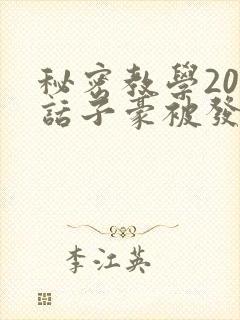 秘密教學20
話子豪被發
李江英